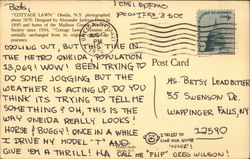 "COTTAGE LAWN," Oneida, N.Y.
about 1870. Designed by Alexander Jackson Davis in
1849 and home of the Madison County Historical
Society since 1954, "Cottage Lawn"
COOLING OUT, BUT THIS TIME IN
THE METRO ONEIDA, (POPULATION
13,069) WOW! BEEN TRYING TO
DO SOME JOGGING BUT THE
WEATHER IS ACTING UP. DO YOU
THINK ITS TRYING TO TELL ME
SOMETHING? OH, THIS IS THE
WAY ONEIDA REALLY LOOKS!
HORSE & BUGGY! ONCE IN A WHILE
I DRIVE MY MODEL "T" AND
GIVE 'EM A THRILL! HA
CALL ME "FLIP" GREG WILSON!
Post Card
MS. BETSY LEADBITTER
35 SWENSON DR.
WAPPINGER FALLS, NY
12590